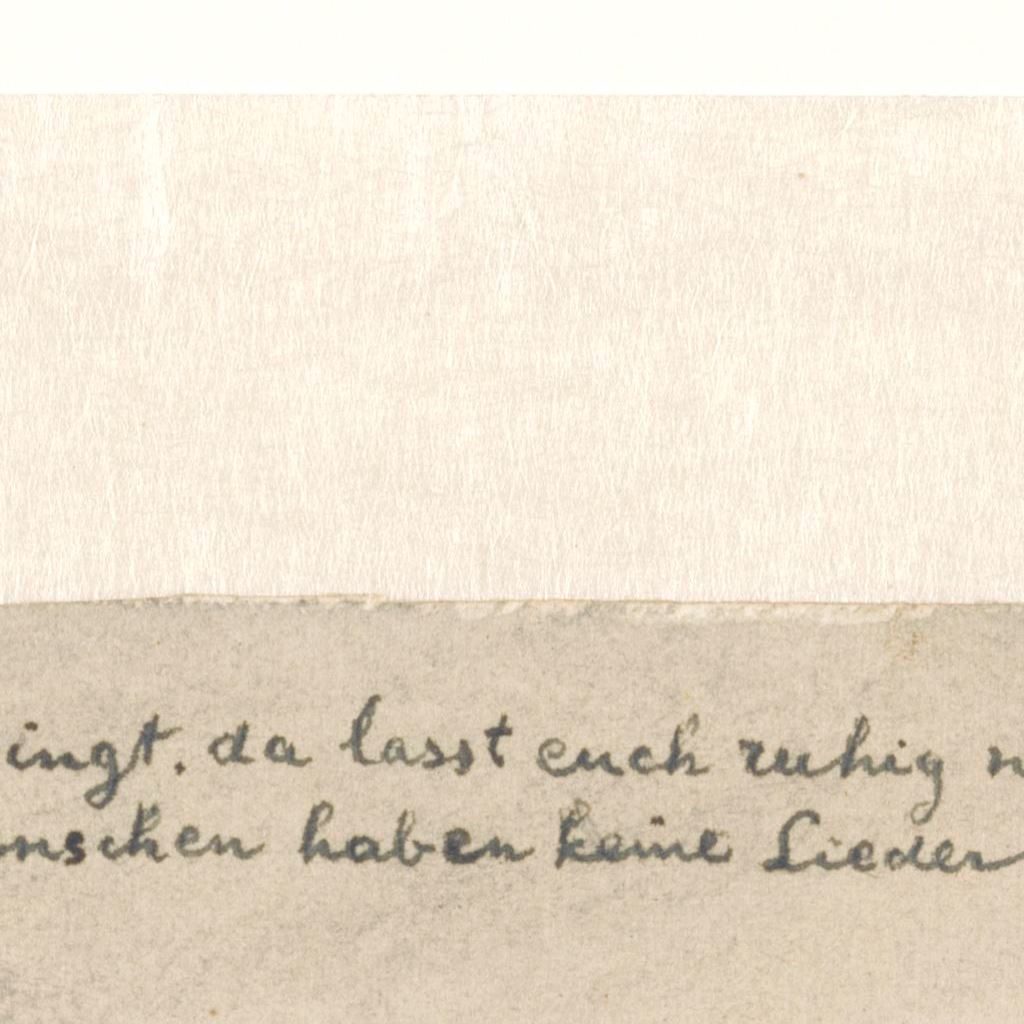 ingt, da lasst euch ruhig n
nschen haben keine Lieder